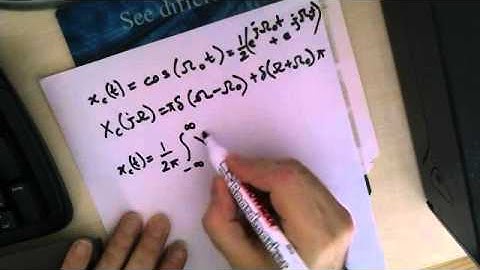 See differen
x_c(t) = cos(Ω₀t) = 1/2(e^{jΩ₀t} + e^{jΩ₀t})
X_c(jΩ) = πδ(Ω-Ω₀) + δ(Ω+Ω₀)π
x_c(t) = 1/2π ∫_{-∞}^{∞}